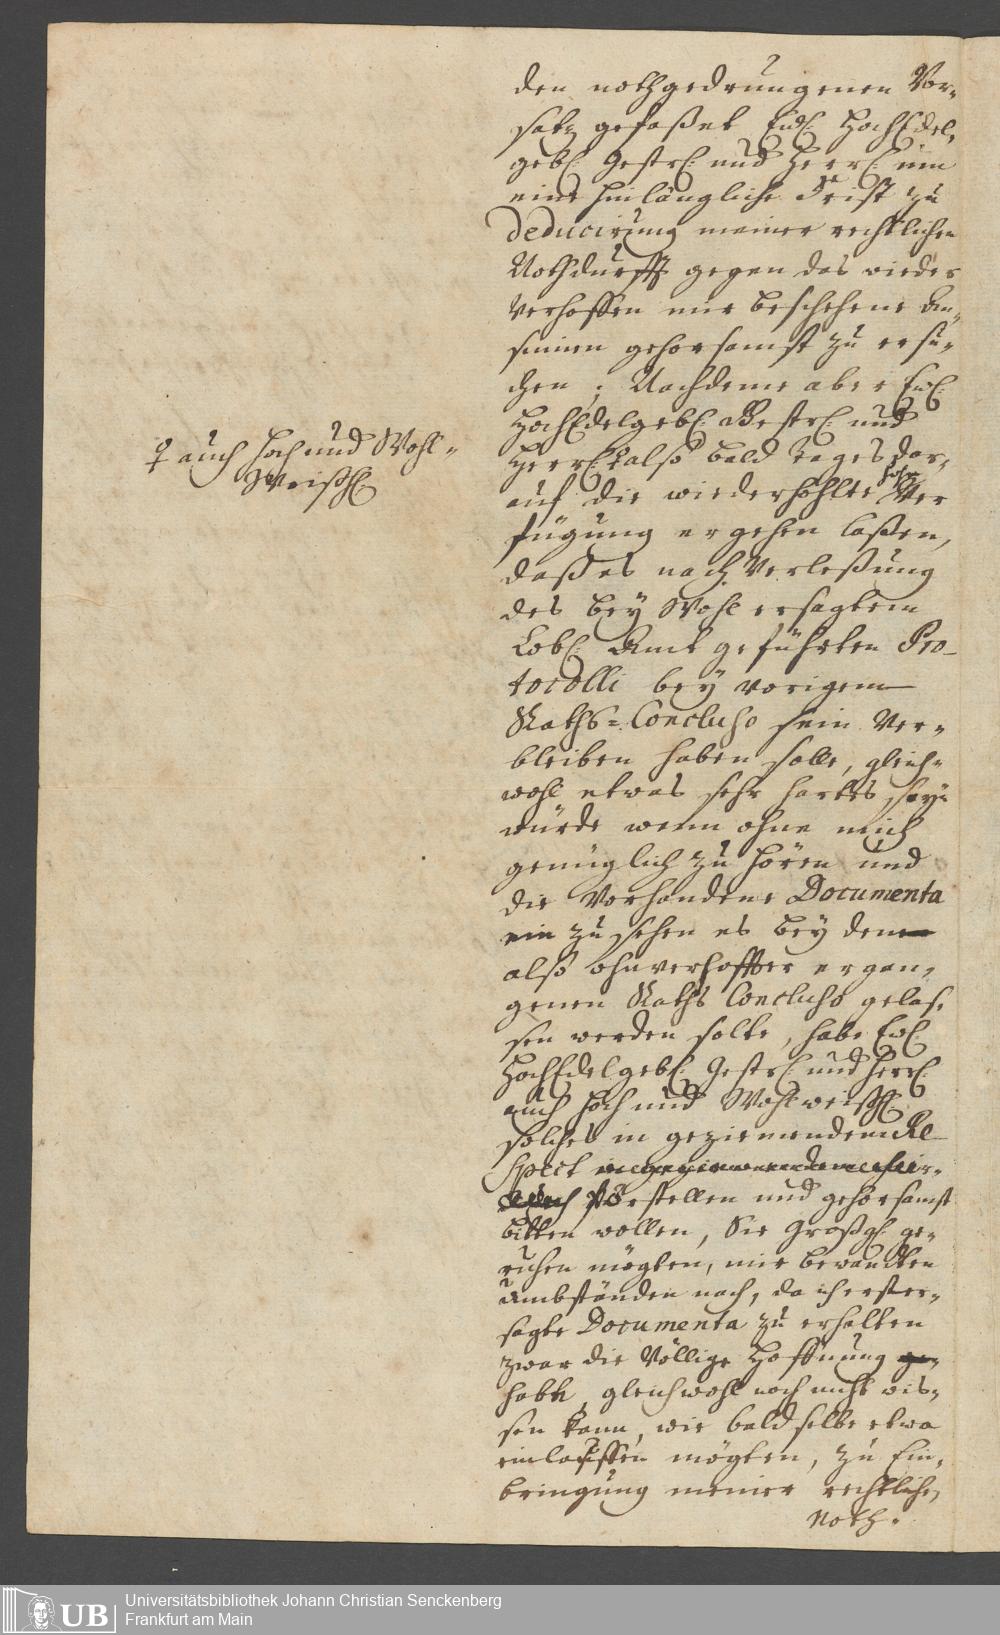 den nothgedrungenen Vor-
satz gefaßet Ew: HochEdel-
geb: Gestr: und Herrl: um
eine hinlängliche Frist zu
deducirung meiner rechtlichen
Nothdurfft gegen das wieder
verhoffen mir beschehene An-
sinnen gehorsamst zu ersu-
chen; Nachdeme aber Ew:
HochEdelgeb: Gestr: und
Herrl: ♀ also bald tages dar-
auf die wiederhohlte hohe Ver
fügung ergehen laßen,
daß es nach Verleßung
des bey Wohl ersagtem
Löbl: Amt geführten Pro-
tocolli bey vorigem
Raths-Concluso sein Ver-
bleiben haben solle, gleich-
wohl etwas sehr hartes seyn
würde wenn ohne mich
genüglich zu hören und
die vorhandene Documenta
ein zu sehen es bey dem
also ohnverhoffter ergan-
genen Raths Concluso gelas-
sen werden solte, habe Ew:
HochEdelgeb: Gestr: und Herrl:
auch Hoch und Wohlweißh:
solches in geziemendem Re-
spect
vorstellen und gehorsamst
bitten wollen, Sie Großg: ge-
ruhen mögten, mir bewandten
Umbständen nach, da ich erster-
sagte Documenta zu erhalten
zwar die Völlige Hoffnung ge-
habt, gleichwohl noch nicht wis-
sen kann, wie bald selbe etwa
einlauffen mögten, zu Ein-
bringung meiner rechtlichen
Noth-
♀ auch Hoch und Wohl-
Weißh:
UB
Universitätsbibliothek Johann Christian Senckenberg
Frankfurt am Main